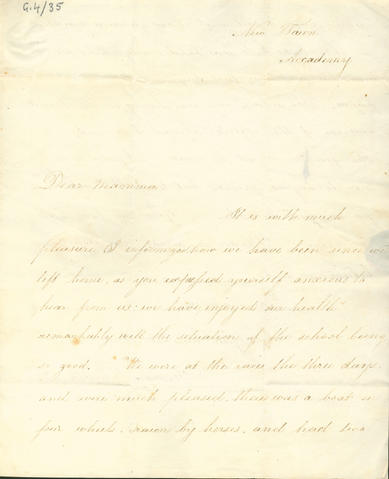 G.4/35
New Town
Accademy
Dear Mamma
It is with much
pleasure I inform you how we have been since we
left home, as you expressed yourself anxious to
hear from us: we have enjoyed our health
remarkably well the situation of the school being
so good. We were at the races the three days
and were much pleased, there was a boat on
four wheels drawn by horses, and had two